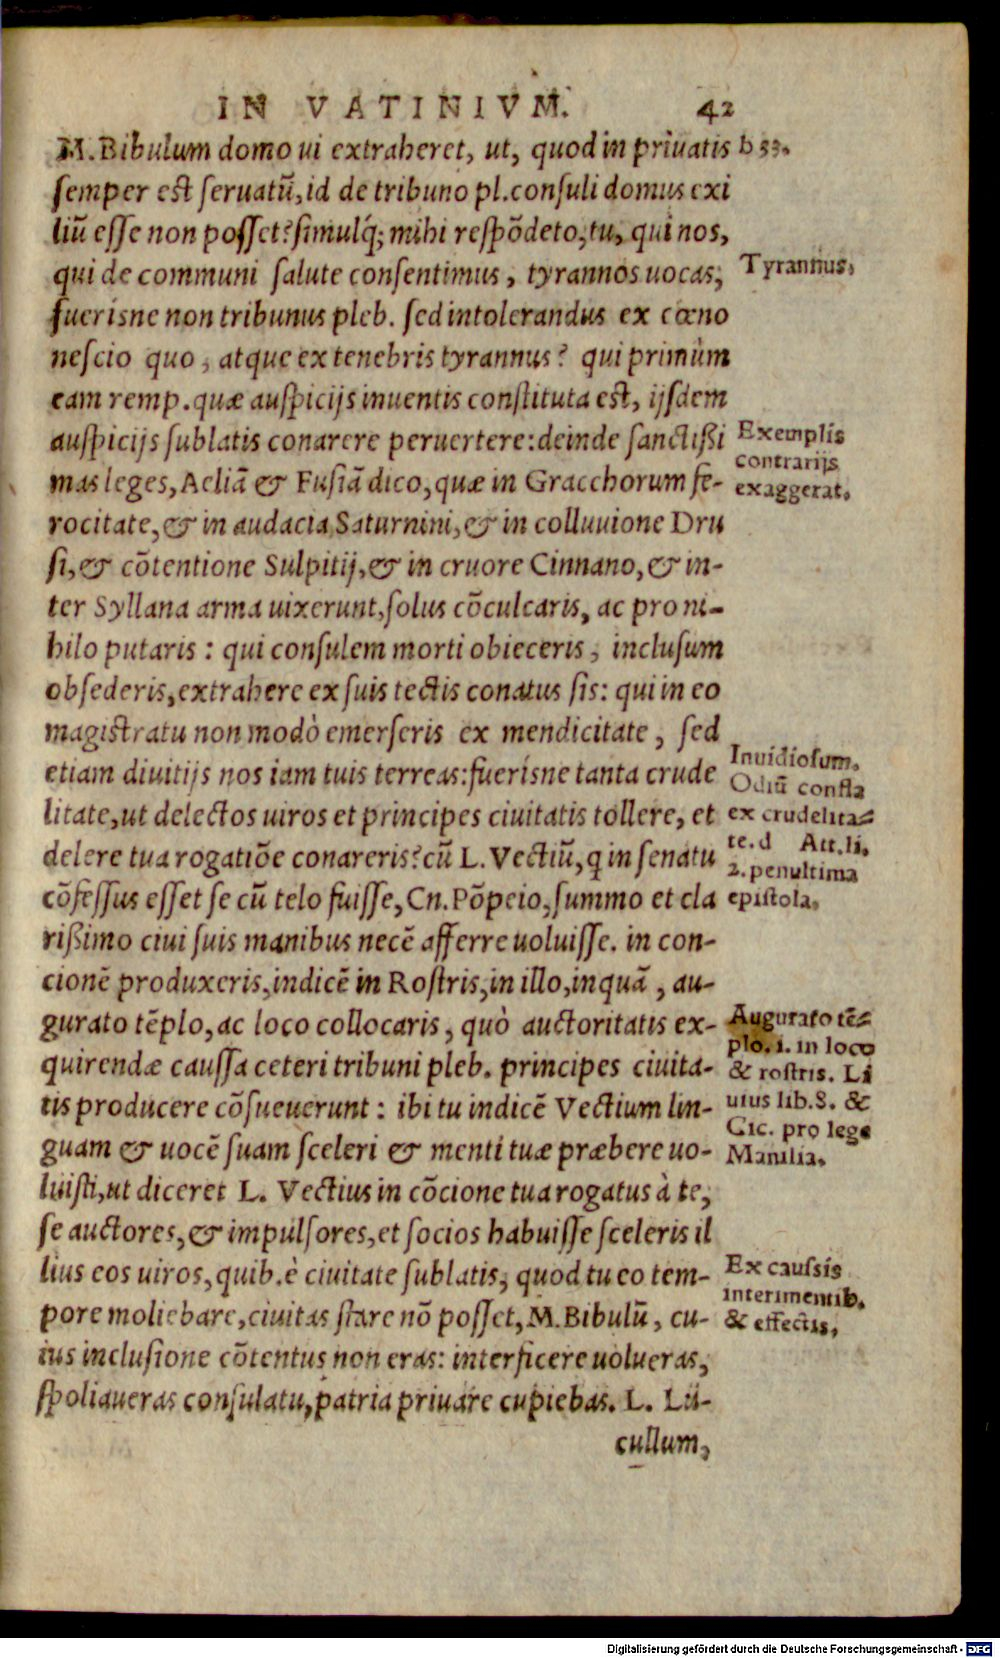 IN VATINIVM. 42
M. Bibulum domo ui extraheret, ut, quod in priuatis
semper est seruatū, id de tribuno pl. consuli domus exi
liū esse non posset? simulq́; mihi respōdeto, tu, qui nos,
qui de communi salute consentimus, tyrannos uocas,
fuerisne non tribunus pleb. sed intolerandus ex cœno
nescio quo, atque ex tenebris tyrannus? qui primùm
eam remp. quæ auspicijs inuentis constituta est, ijsdem
auspicijs sublatis conarere peruertere: deinde sanctißi
mas leges, Aeliā & Fusiā dico, quæ in Gracchorum fe-
rocitate, & in audacia Saturnini, & in colluuione Dru
si, & cōtentione Sulpitij, & in cruore Cinnano, & in-
ter Syllana arma uixerunt, solus cōculcaris, ac pro ni-
hilo putaris: qui consulem morti obieceris, inclusum
obsederis, extrahere ex suis tectis conatus sis: qui in eo
magistratu non modò emerseris ex mendicitate, sed
etiam diuitijs nos iam tuis terreas: fuerisne tanta crude
litate, ut delectos uiros et principes ciuitatis tollere, et
delere tua rogatiōe conareris? cū L. Vectiū, q in senatu
cōfessus esset se cū telo fuisse, Cn. Pōpeio, summo et cla
rißimo ciui suis manibus necē afferre uoluisse. in con-
cionē produxeris, indicē in Rostris, in illo, inquā, au-
gurato tēplo, ac loco collocaris, quò auctoritatis ex-
quirendæ caussa ceteri tribuni pleb. principes ciuita-
tis producere cōsueuerunt: ibi tu indicē Vectium lin-
guam & uocē suam sceleri & menti tuæ præbere uo-
luisti, ut diceret L. Vectius in cōcione tua rogatus à te,
se auctores, & impulsores, et socios habuisse sceleris il
lius eos uiros, quib. è ciuitate sublatis, quod tu eo tem-
pore moliebare, ciuitas stare nō posset, M. Bibulū, cu-
ius inclusione cōtentus non eras: interficere uolueras,
spoliaueras consulatu, patria priuare cupiebas. L. Lu-
cullum,
b 53.
Tyrannus,
Exemplis
contrarijs
exaggerat.
Inuidiosum.
Odiū confla
ex crudelita-
te. d Att. li.
2. penultima
epistola.
Augurato tē-
plo. i. in loco
& rostris. Li
uius lib. 8. &
Cic. pro lege
Manilia.
Ex caussis
interimentib.
& effectis,
Digitalisierung gefördert durch die Deutsche Forschungsgemeinschaft - DFG